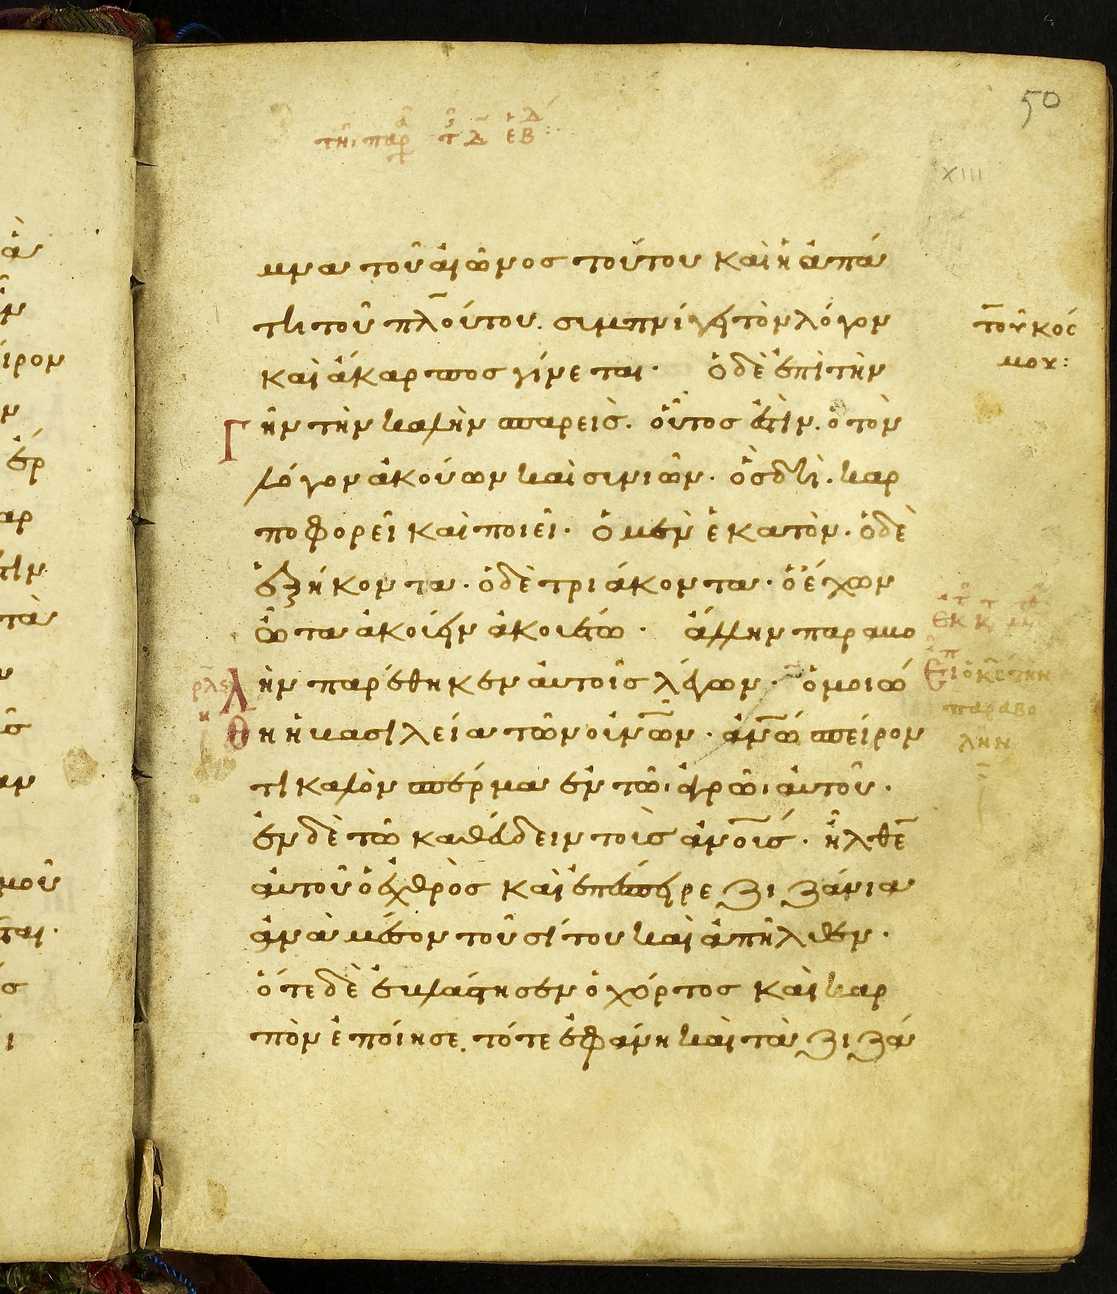 50
τῆ παρ τ Δ ἑβ
XIII
μνα τοῦ αἰῶνος τούτου καὶ ἡ ἀπά
τη τοῦ πλούτου. συμπνίγη τὸν λόγον
τοῦ κόσ
μου:
καὶ ἄκαρπος γίνεται· ὁ δὲ ἐπὶ τὴν
Γ
ῆν τὴν καλὴν σπαρεὶς. οὗτος ἐστὶν. ὁ τὸν
λόγον ἀκούων καὶ συνιῶν· ὃς δὴ. καρ
ποφορεῖ καὶ ποιεῖ· ὃ μὲν ἑκατὸν. ὃ δὲ
ἑξήκοντα· ὃ δὲ τριάκοντα· ὁ ἔχων
ὦτα ἀκούειν ἀκουέτω· ἄλλην παραβο
Λ
ὴν παρέθηκεν αὐτοῖς λέγων· ὁμοιώ
Θ
η ἡ βασιλεία τῶν οὐνῶν· ἀνῶ σπείρον
παραβο
λην
τι καλὸν σπέρμα ἐν τῶ ἀγρῶ αὐτοῦ·
ἐν δὲ τῶ καθεύδειν τοὺς ἀνους· ἦλθε
αὐτοῦ ὁ ἐχθρὸς καὶ ἐπέσπειρε ζιζάνια
ἀνὰ μέσον τοῦ σίτου καὶ ἀπῆλθεν·
ὅτε δὲ ἐβλάστησεν ὁ χόρτος καὶ καρ
πὸν ἐποίησε. τότε ἐφάνη καὶ τὰ ζιζά